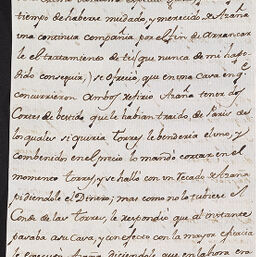 tiempo de haberse mudado, y merecido de Azaña
una continua compañia, por el fin de Arrancar
le el tratamiento de tu, que nunca de mi ha po-
dido conseguir, se ofreció, que en una Casa en q.e
concurrieron Ambos refirio Azaña tener dos
Cortes de bestido que le habian traido de Paris de
los quales si queria Torres le benderia el uno, y
Combenidos en el precio lo mandó cortar en el
momento Torres, y se halló con un recado de Azaña
pidiendole el Dinero; mas como no lo tubiese el
Conde de las Torres, le respondio que al instante
pasaba a su Casa, y con efecto con la mayor eficacia
le Azaña diciendole que en la hora era